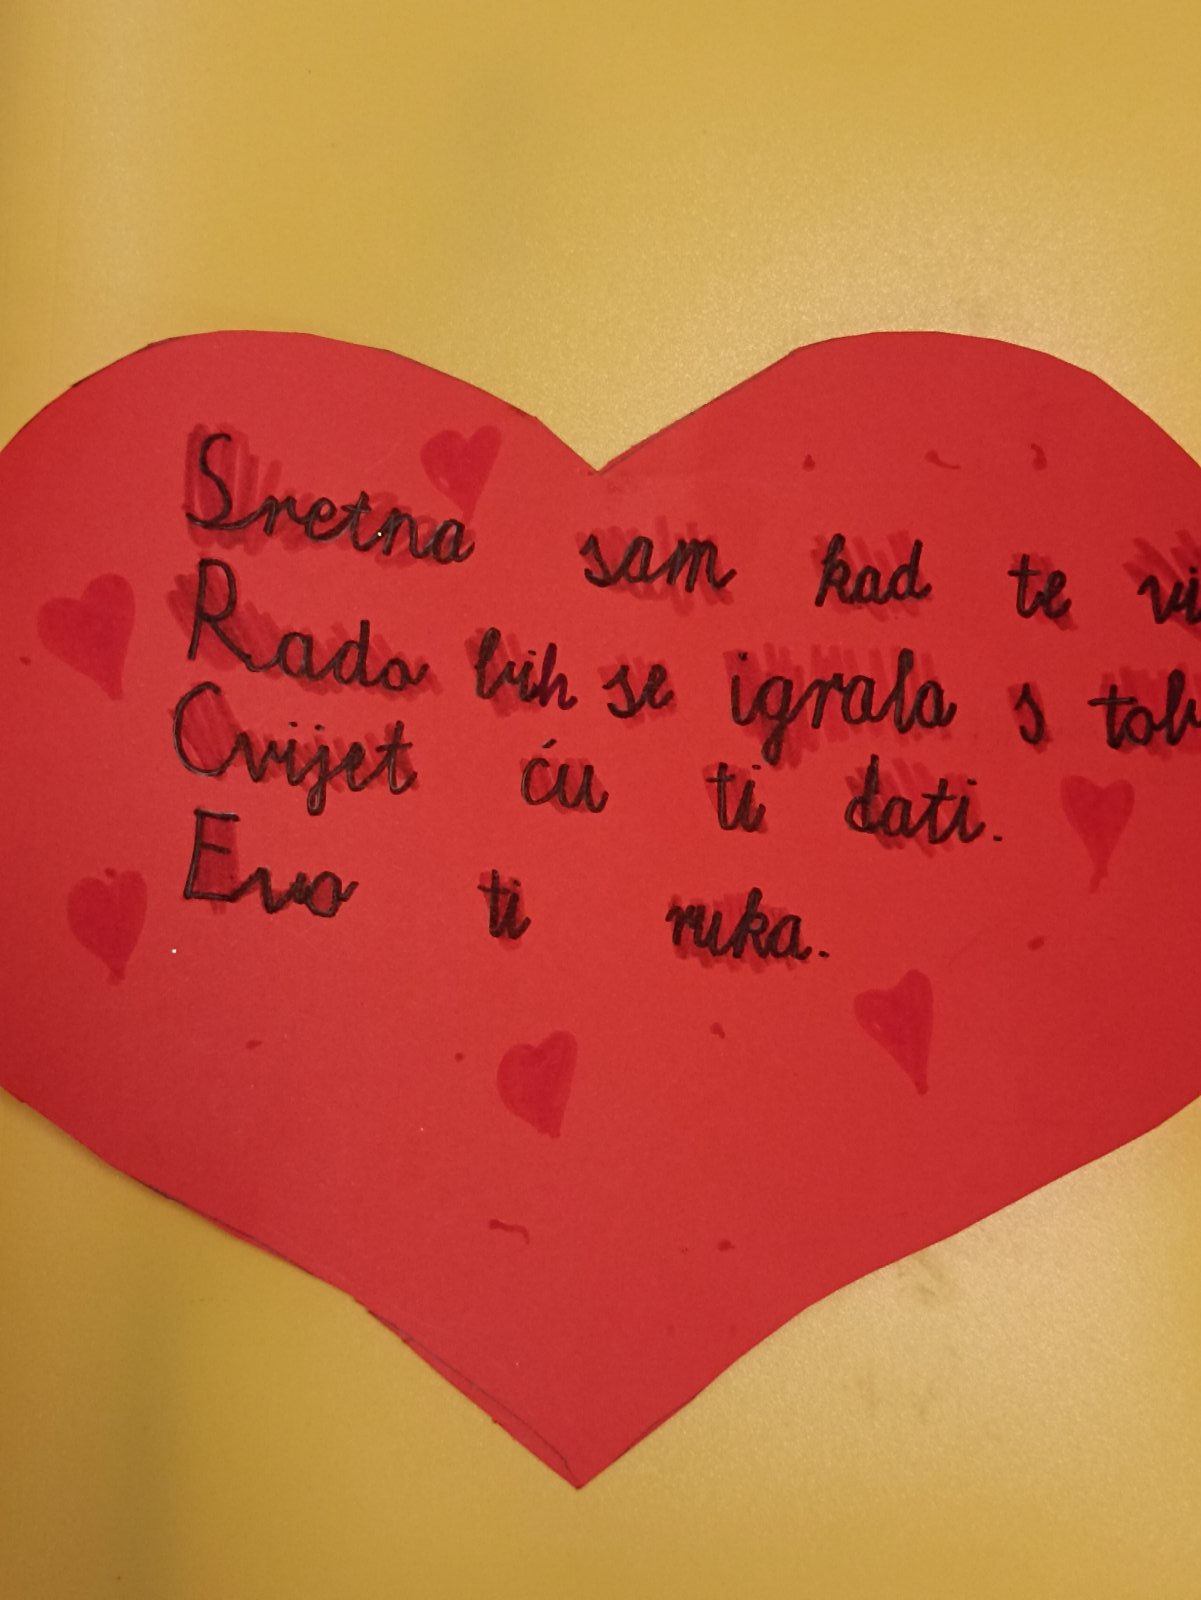 Sretna sam kad te vi
Rado bih se igrala s tob
Cvijet ću ti dati.
Evo ti ruka.